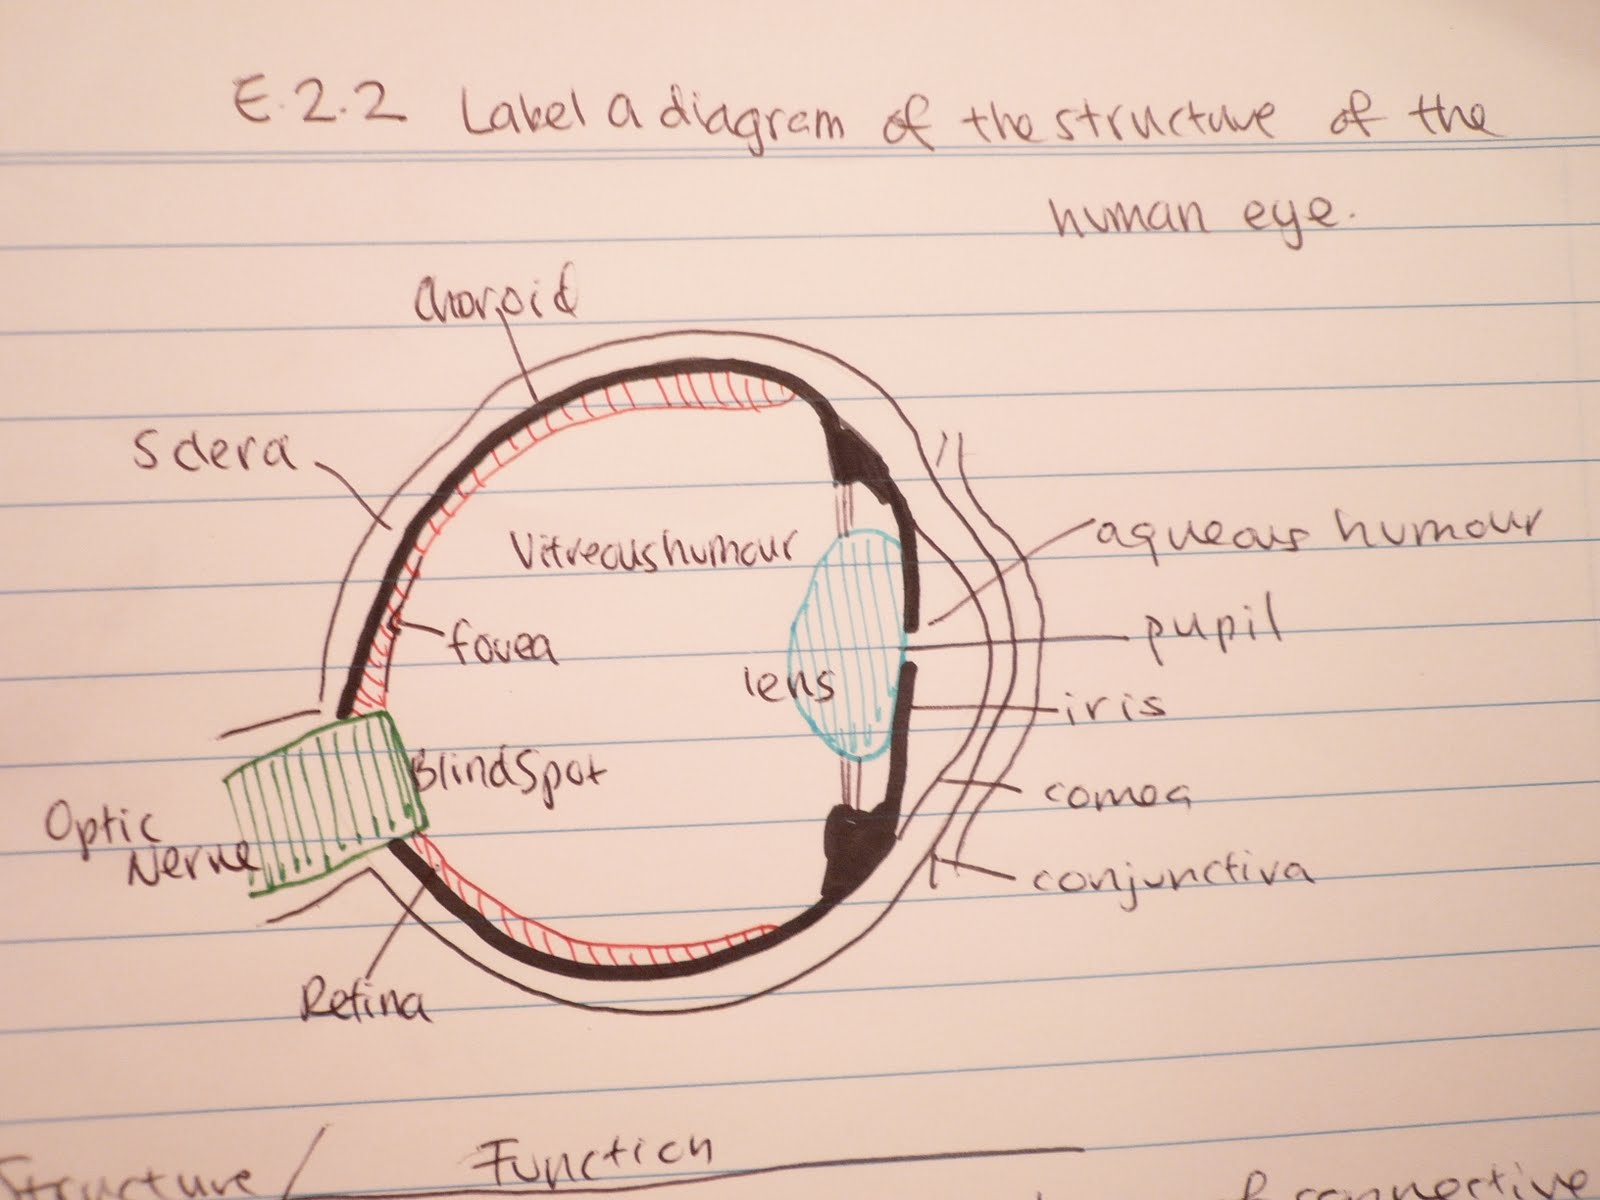 E.2.2 Label a diagram of the structure of the
human eye.
Choroid
Sclera
Vitreous humour
aqueous humour
fovea
pupil
lens
iris
Blind Spot
cornea
Optic
Nerve
conjunctiva
Retina
Structure / Function
of connective